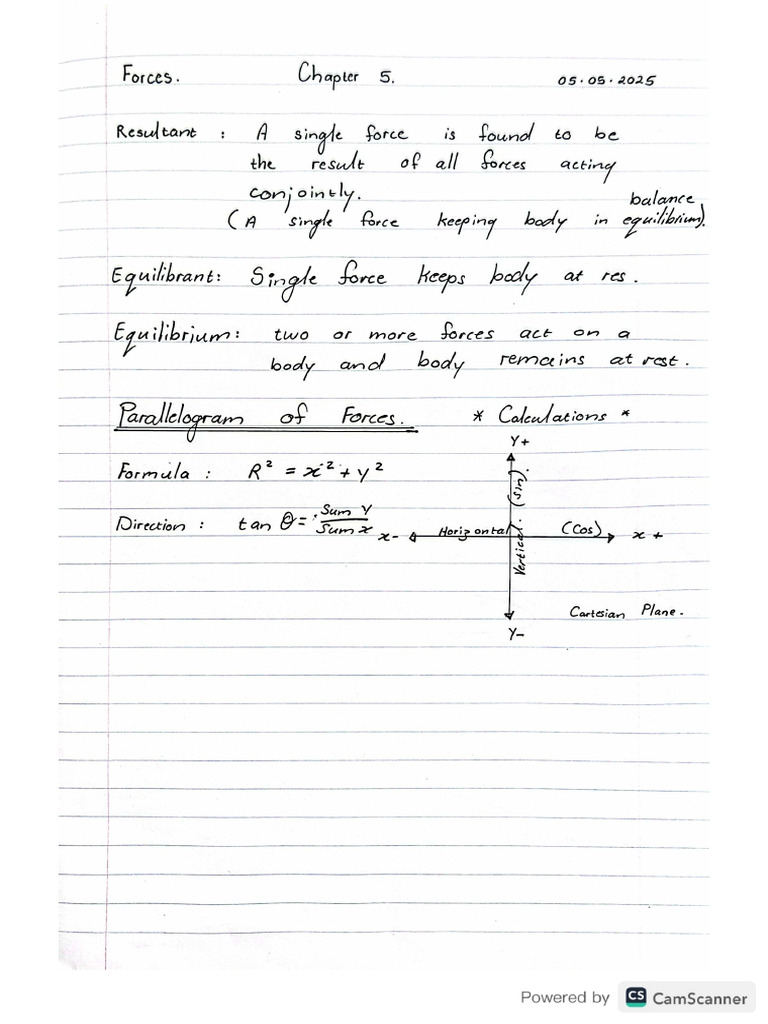 Forces. Chapter 5. 05.05.2025
Resultant : A single force is found to be
the result of all forces acting
conjointly.
balance
(A single force keeping body in equilibrium).
Equilibrant: Single force keeps body at res.
Equilibrium: two or more forces act on a
body and body remains at rest.
Parallelogram of Forces. * Calculations *
Y+
Formula : R² = x² + y²
Direction : tan θ = Sum Y / Sum x
x- Horizontal (Cos) x +
Vertical. (Sin).
Cartesian Plane.
Y-
Powered by CS CamScanner